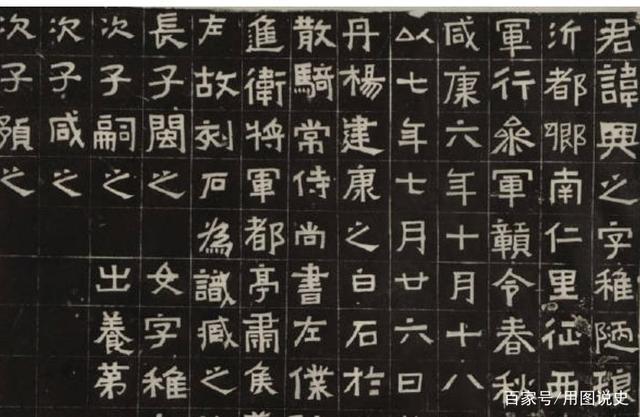 君諱興之字稚陋琅
沂都鄉南仁里征西
軍行參軍贛令春秋
咸康六年十月十八
以七年七月廿六日
丹楊建康之白石於
散騎常侍尚書左僕
進衛將軍都亭肅侯
左故刻石為識臧之
長子閩之 女字稚
次子嗣之 出養第
次子咸之
次子預之
百家号/用图说史